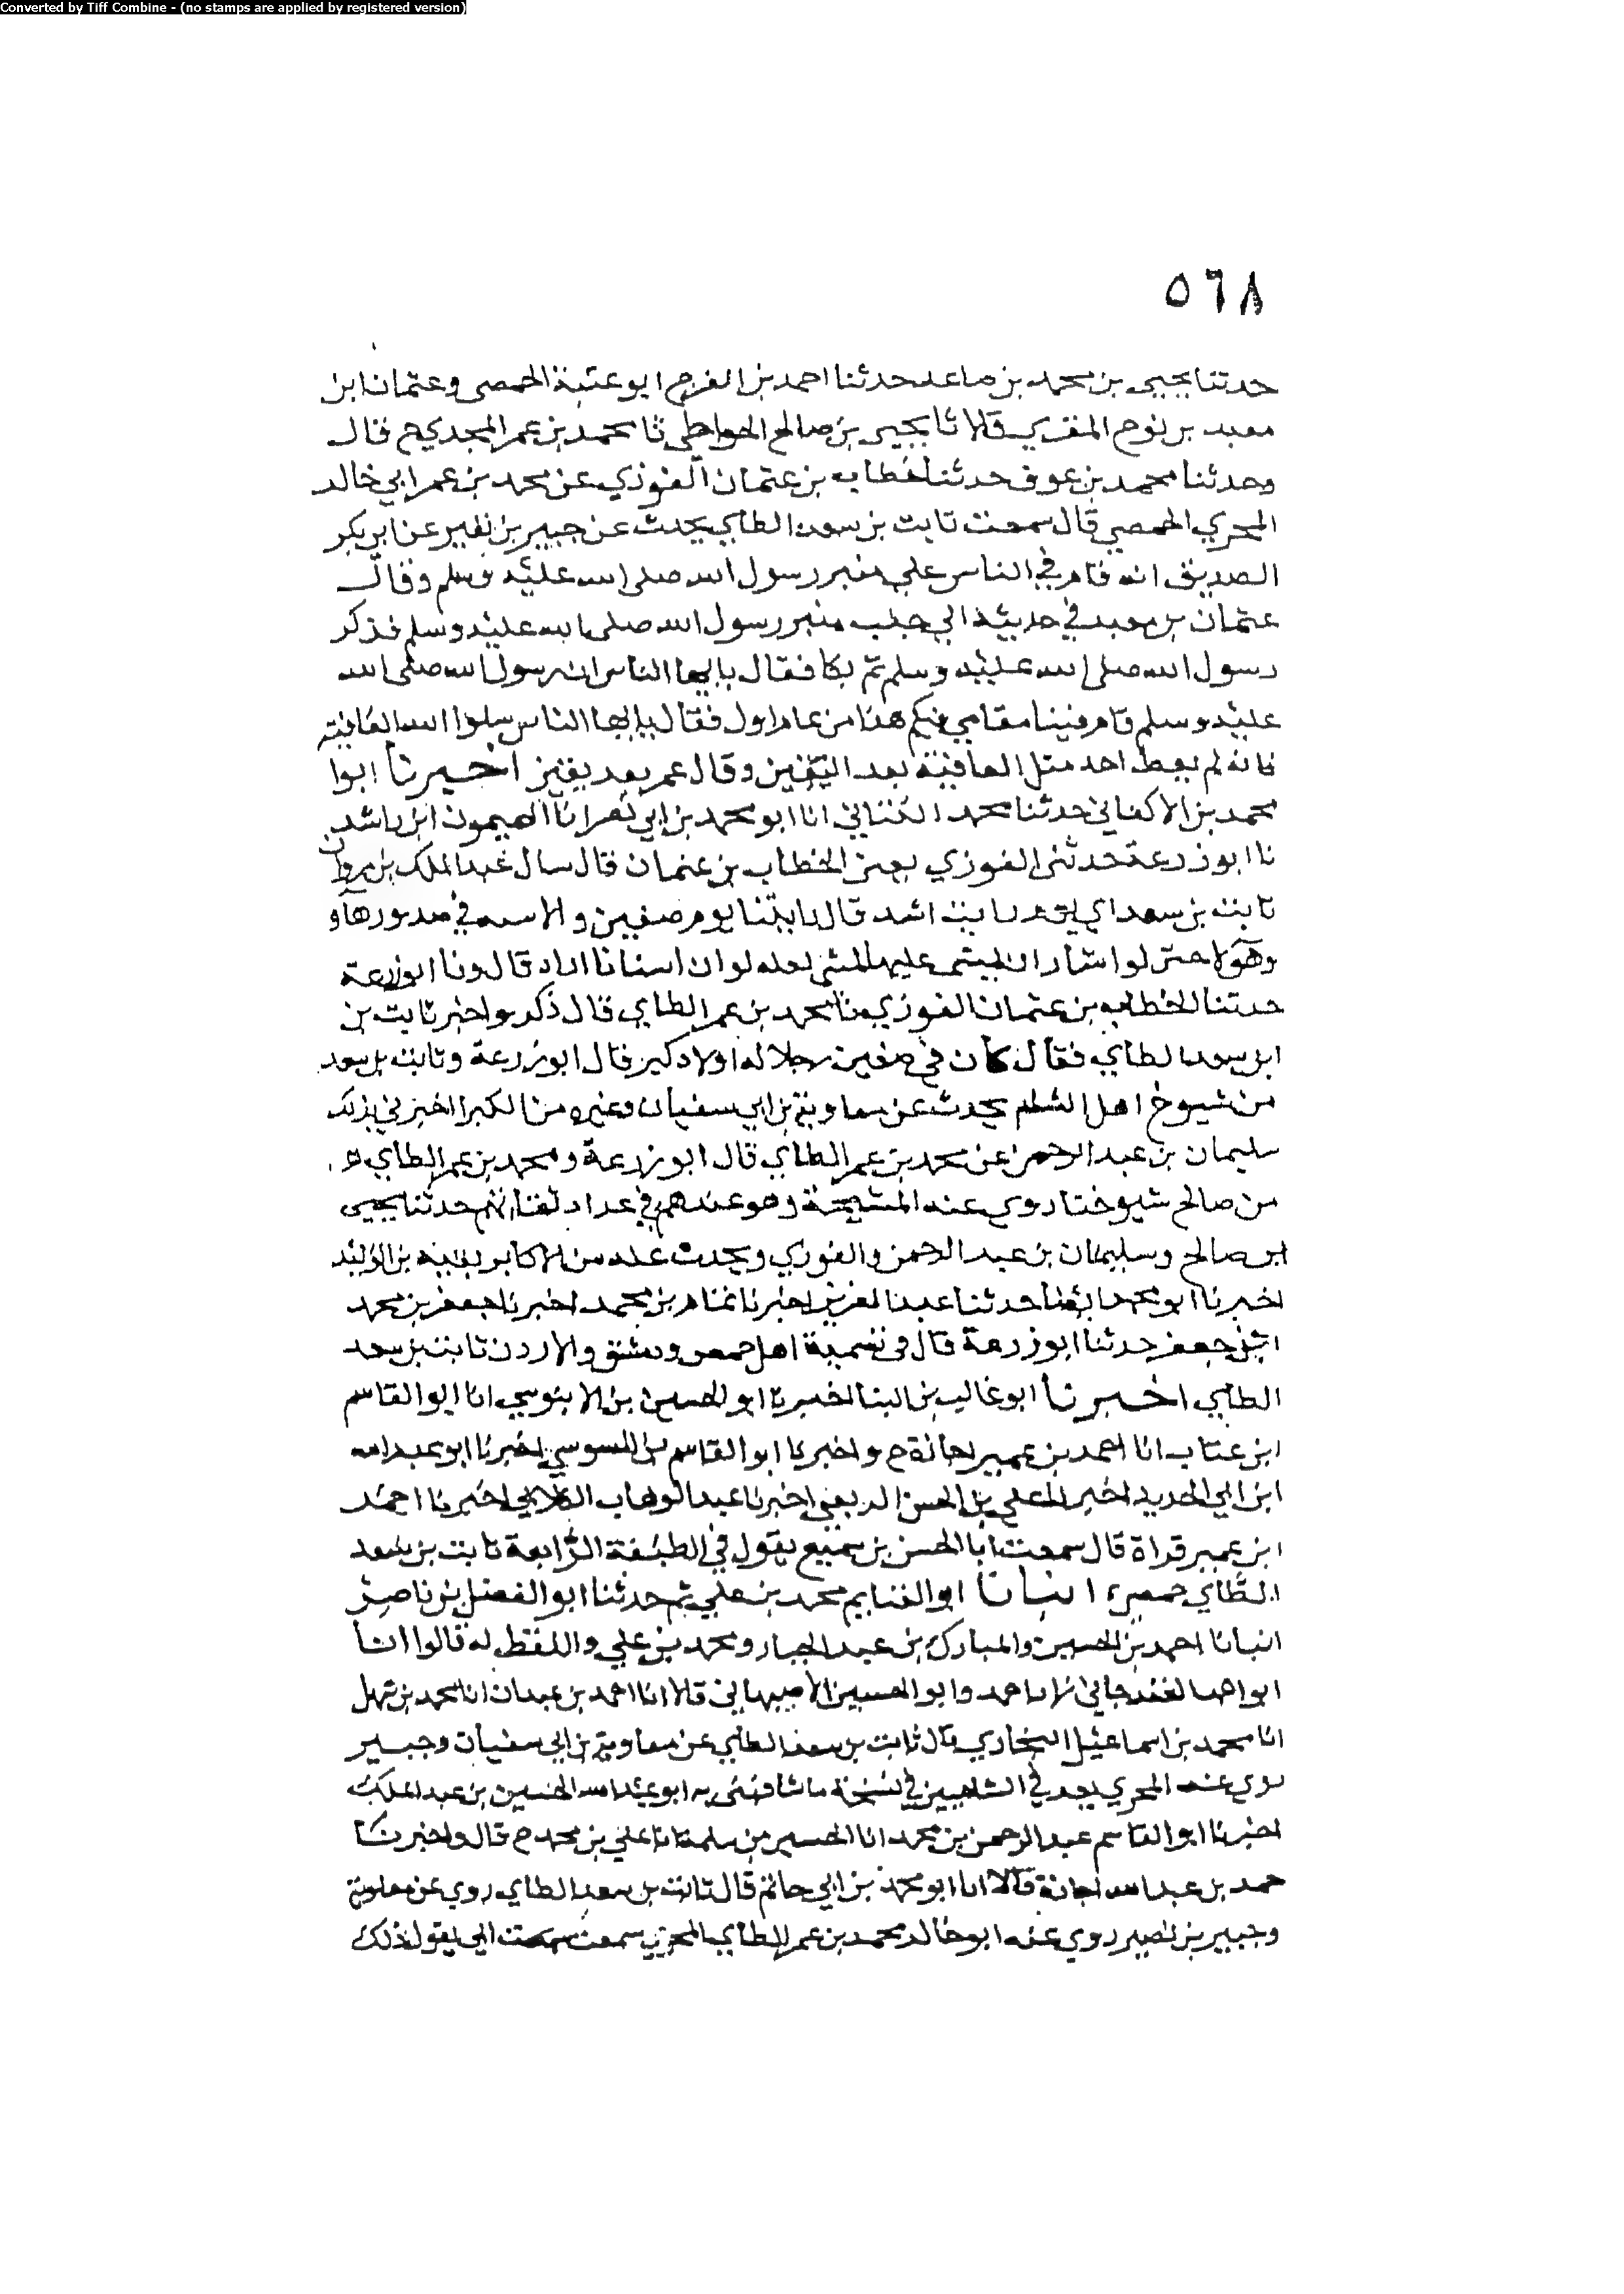 Converted by Tiff Combine - (no stamps are applied by registered version)
٥٦٨
حدثنا يحيى بن محمد بن صاعد حدثنا احمد بن الفرج ابو عتبة الحمصي وعثمان ابن
معبد بن نوح المقري قالا ثا يحيى بن صالح الوحاظي ثا محمد بن عمر المحري ح قال
وحدثنا محمد بن عوف حدثنا خطاب بن عثمان الفوزي عن محمد بن عمر ابي خالد
المحري الحمصي قال سمعت ثابت بن سعد الطاي يحدث عن جبير بن نفير عن ابي بكر
الصديق انه قام في الناس علي منبر رسول الله صلى الله عليه وسلم وقال
عثمان بن معبد في حديثه الي جنب منبر رسول الله صلى الله عليه وسلم فذكر
رسول الله صلى الله عليه وسلم ثم بكا فقال يا ايها الناس ان رسول الله صلى الله
عليه وسلم قام فينا مقامي فيكم هذا من عام اول فقال يا ايها الناس سلوا الله العافية
فانه لم يعط احد مثل العافية بعد اليقين وقال عمر بعد يقين اخبرنا ابوا
محمد بن الاكفاني حدثنا محمد الكناني انا ابو محمد بن ابي نصر انا الميمون ابن راشد
نا ابو زرعة حدثنى الفوزي يعني الخطاب بن عثمان قال سال عبد الملك بن مروان
ثابت بن سعد اي يوم رايت اشد قال رايتنا يوم صفين والاسنه في صدورها و
وهولا حتى لو اشا ان يمشى عليها لمشى لعله لو ان اسنانا اراد قال ونا ابوزرعة
حدثنا الخطاب بن عثمان الفوزي نا محمد بن عمر الطاي قال ذكر بو اخبر ثابت بن
ابن سعد الطاي فقال كان في صفين رجلا له اولاد كبير قال ابو زرعة وثابت بن سعد
من شيوخ اهل الشام يحدث عن معاوية بن ابي سفيان وغيره من الكبرا اخبرني بذلك
سليمان بن عبد الرحمن عن محمد بن عمر الطاي قال ابو زرعة ومحمد بن عمر الطاي
من صالح شيوخنا روي عنه المشيخة وهو عندهم في عداد ثقاتهم حدثنا يحيى
ابن صالح وسليمان بن عبد الرحمن والفوزي ويحدث عنه من الاكابر بقية بن الوليد
اخبرنا ابو محمد ايضا حدثنا عبد العزيز اخبرنا تمام بن محمد اخبرنا جعفر بن محمد
ابن جعفر حدثنا ابو زرعة قال في تسمية اهل حمص ودمشق والاردن ثابت بن سعد
الطاي اخبرنا ابو غالب بن البنا اخبرنا ابو الحسين بن الابنوسي انا ابو القاسم
ابن عتاب انا احمد بن عمير اجازة ح واخبرنا ابو القاسم بن السوسي اخبرنا ابو عبد الله
ابن ابي الحديد اخبرنا علي بن الحسن الربعي اخبرنا عبد الوهاب الكلابي اخبرنا احمد
ابن عمير قراة قال سمعت ابا الحسن بن سميع يقول في الطبقة الرابعة ثابت بن سعد
الطاي حمصي انبانا ابو الغنايم محمد بن علي ثم حدثنا ابو الفضل بن ناصر
انبانا احمد بن الحسين والمبارك بن عبد الجبار ومحمد بن علي واللفظ له قالوا انا
ابو احمد الغندجاني زاد احمد وابو الحسين الاصبهاني قالا انا احمد بن عبدان انا محمد بن سهل
انا محمد بن اسماعيل البخاري قال ثابت بن سعد الطاي عن معاوية بن ابي سفيان وجبير
روي عنه المحري يعد في الشاميين في نسخة ما شافهني به ابو عبد الله الحسين بن عبد الملك
اخبرنا ابو القاسم عبد الرحمن بن محمد انا الحسين بن سلمة انا علي بن محمد ح قال واخبرنا
حمد بن عبد الله اجازة قالا انا ابو محمد بن ابي حاتم قال ثابت بن سعد الطاي روي عن معاوية
وجبير بن نصير روي عنه ابو خالد محمد بن عمر الطاي المحري سمعت سمعت ابي يقول ذلك